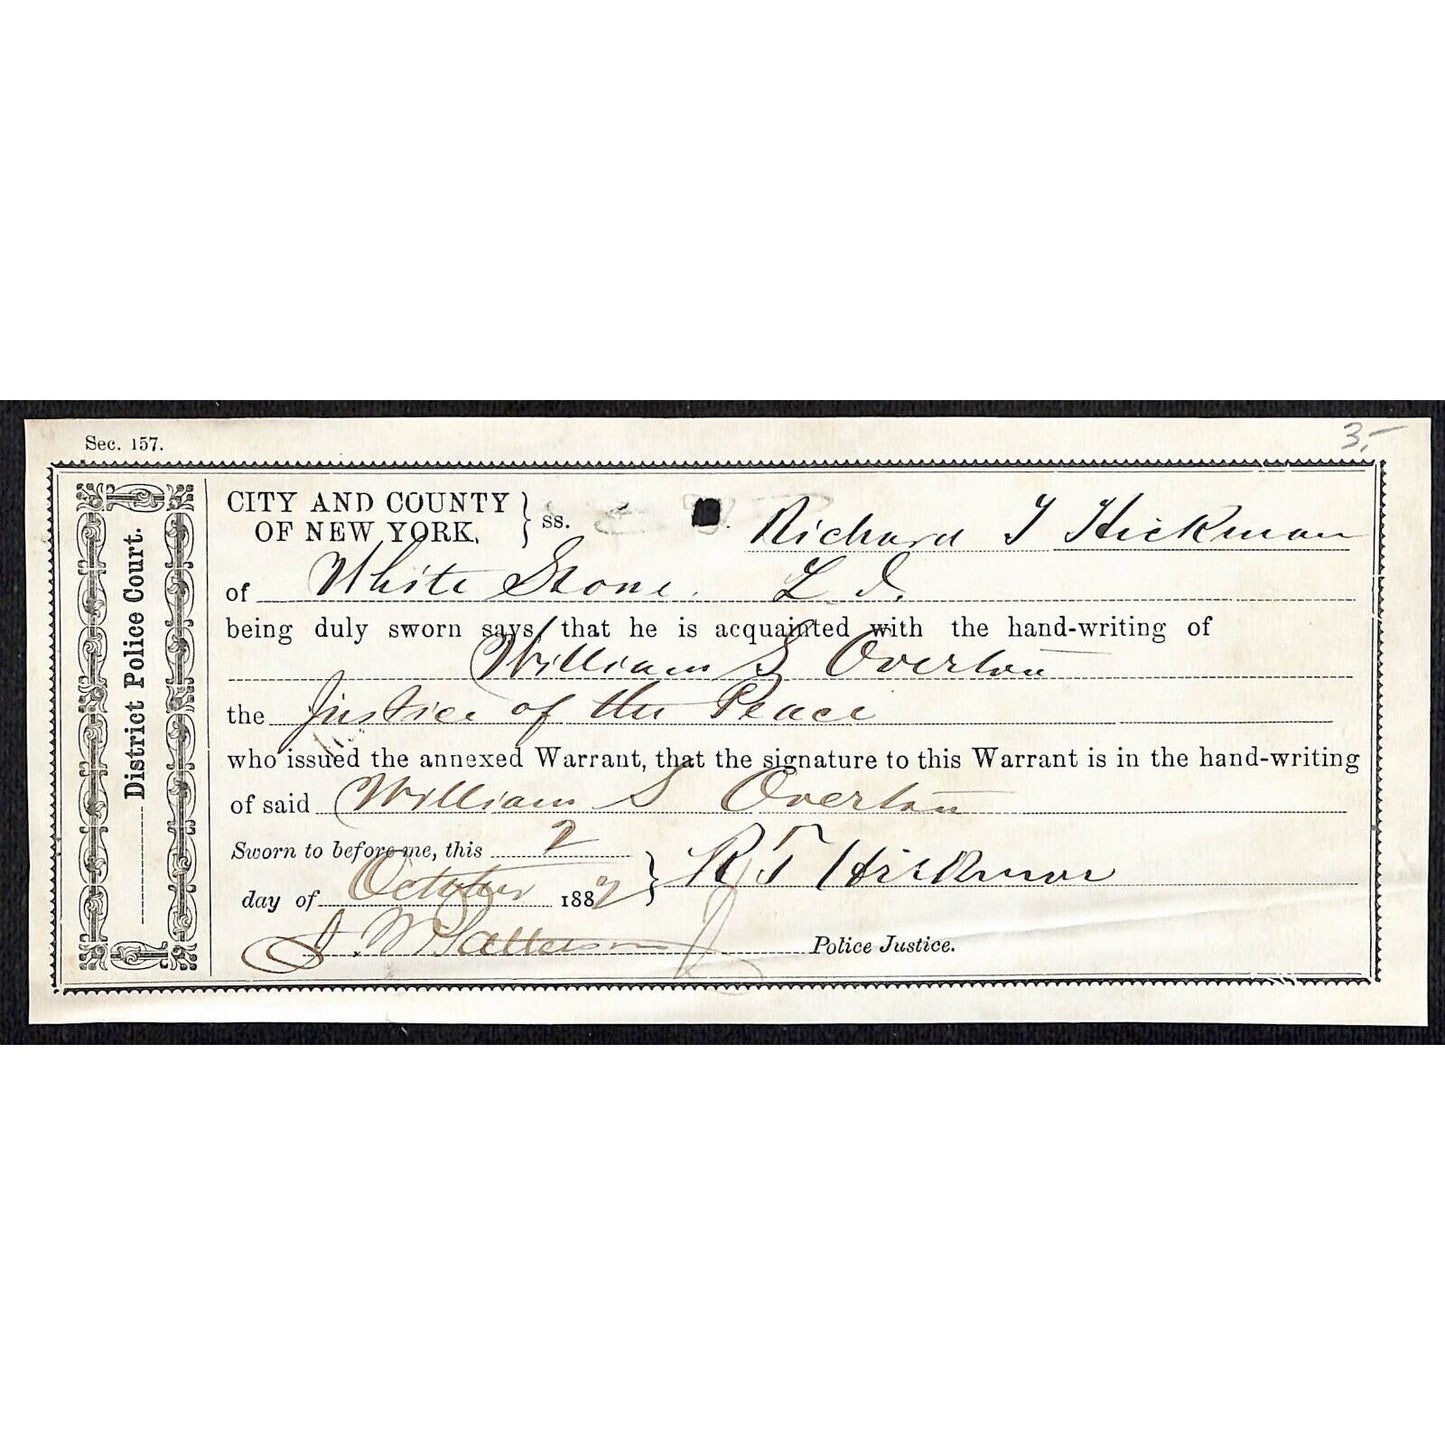 3.-
Sec. 157.
District Police Court.
CITY AND COUNTY
OF NEW YORK, } ss.
Richard T Hickman
of White Stone. L. I.
being duly sworn says, that he is acquainted with the hand-writing of
William S Overton
the Justice of the Peace
who issued the annexed Warrant, that the signature to this Warrant is in the hand-writing
of said William S Overton
Sworn to before me, this 2
day of October 1882 } R T Hickman
J. M Patterson Jr Police Justice.